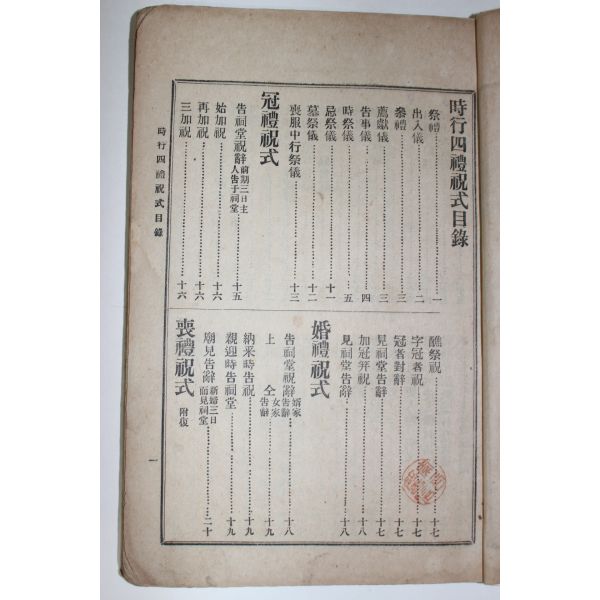 時行四禮祝式目錄
祭禮 一
出入儀 二
參禮 三
薦獻儀 三
告事儀 四
時祭儀 五
忌祭儀 十一
墓祭儀 十二
喪服中行祭儀 十三
冠禮祝式
告祠堂祝辭 前期三日主人告于祠堂 十五
始加祝 十六
再加祝 十六
三加祝 十六
醮祭祝 十七
字冠者祝 十七
冠者對辭 十七
見祠堂告辭 十七
加冠笄祝 十八
見祠堂告辭 十八
婚禮祝式
告祠堂祝辭 婿家告辭 十八
上仝 女家告辭 十九
納采時告祝 十九
親迎時告祠堂 十九
廟見告辭 新婦三日而見祠堂 二十
喪禮祝式 附復
時行四禮祝式目錄
一